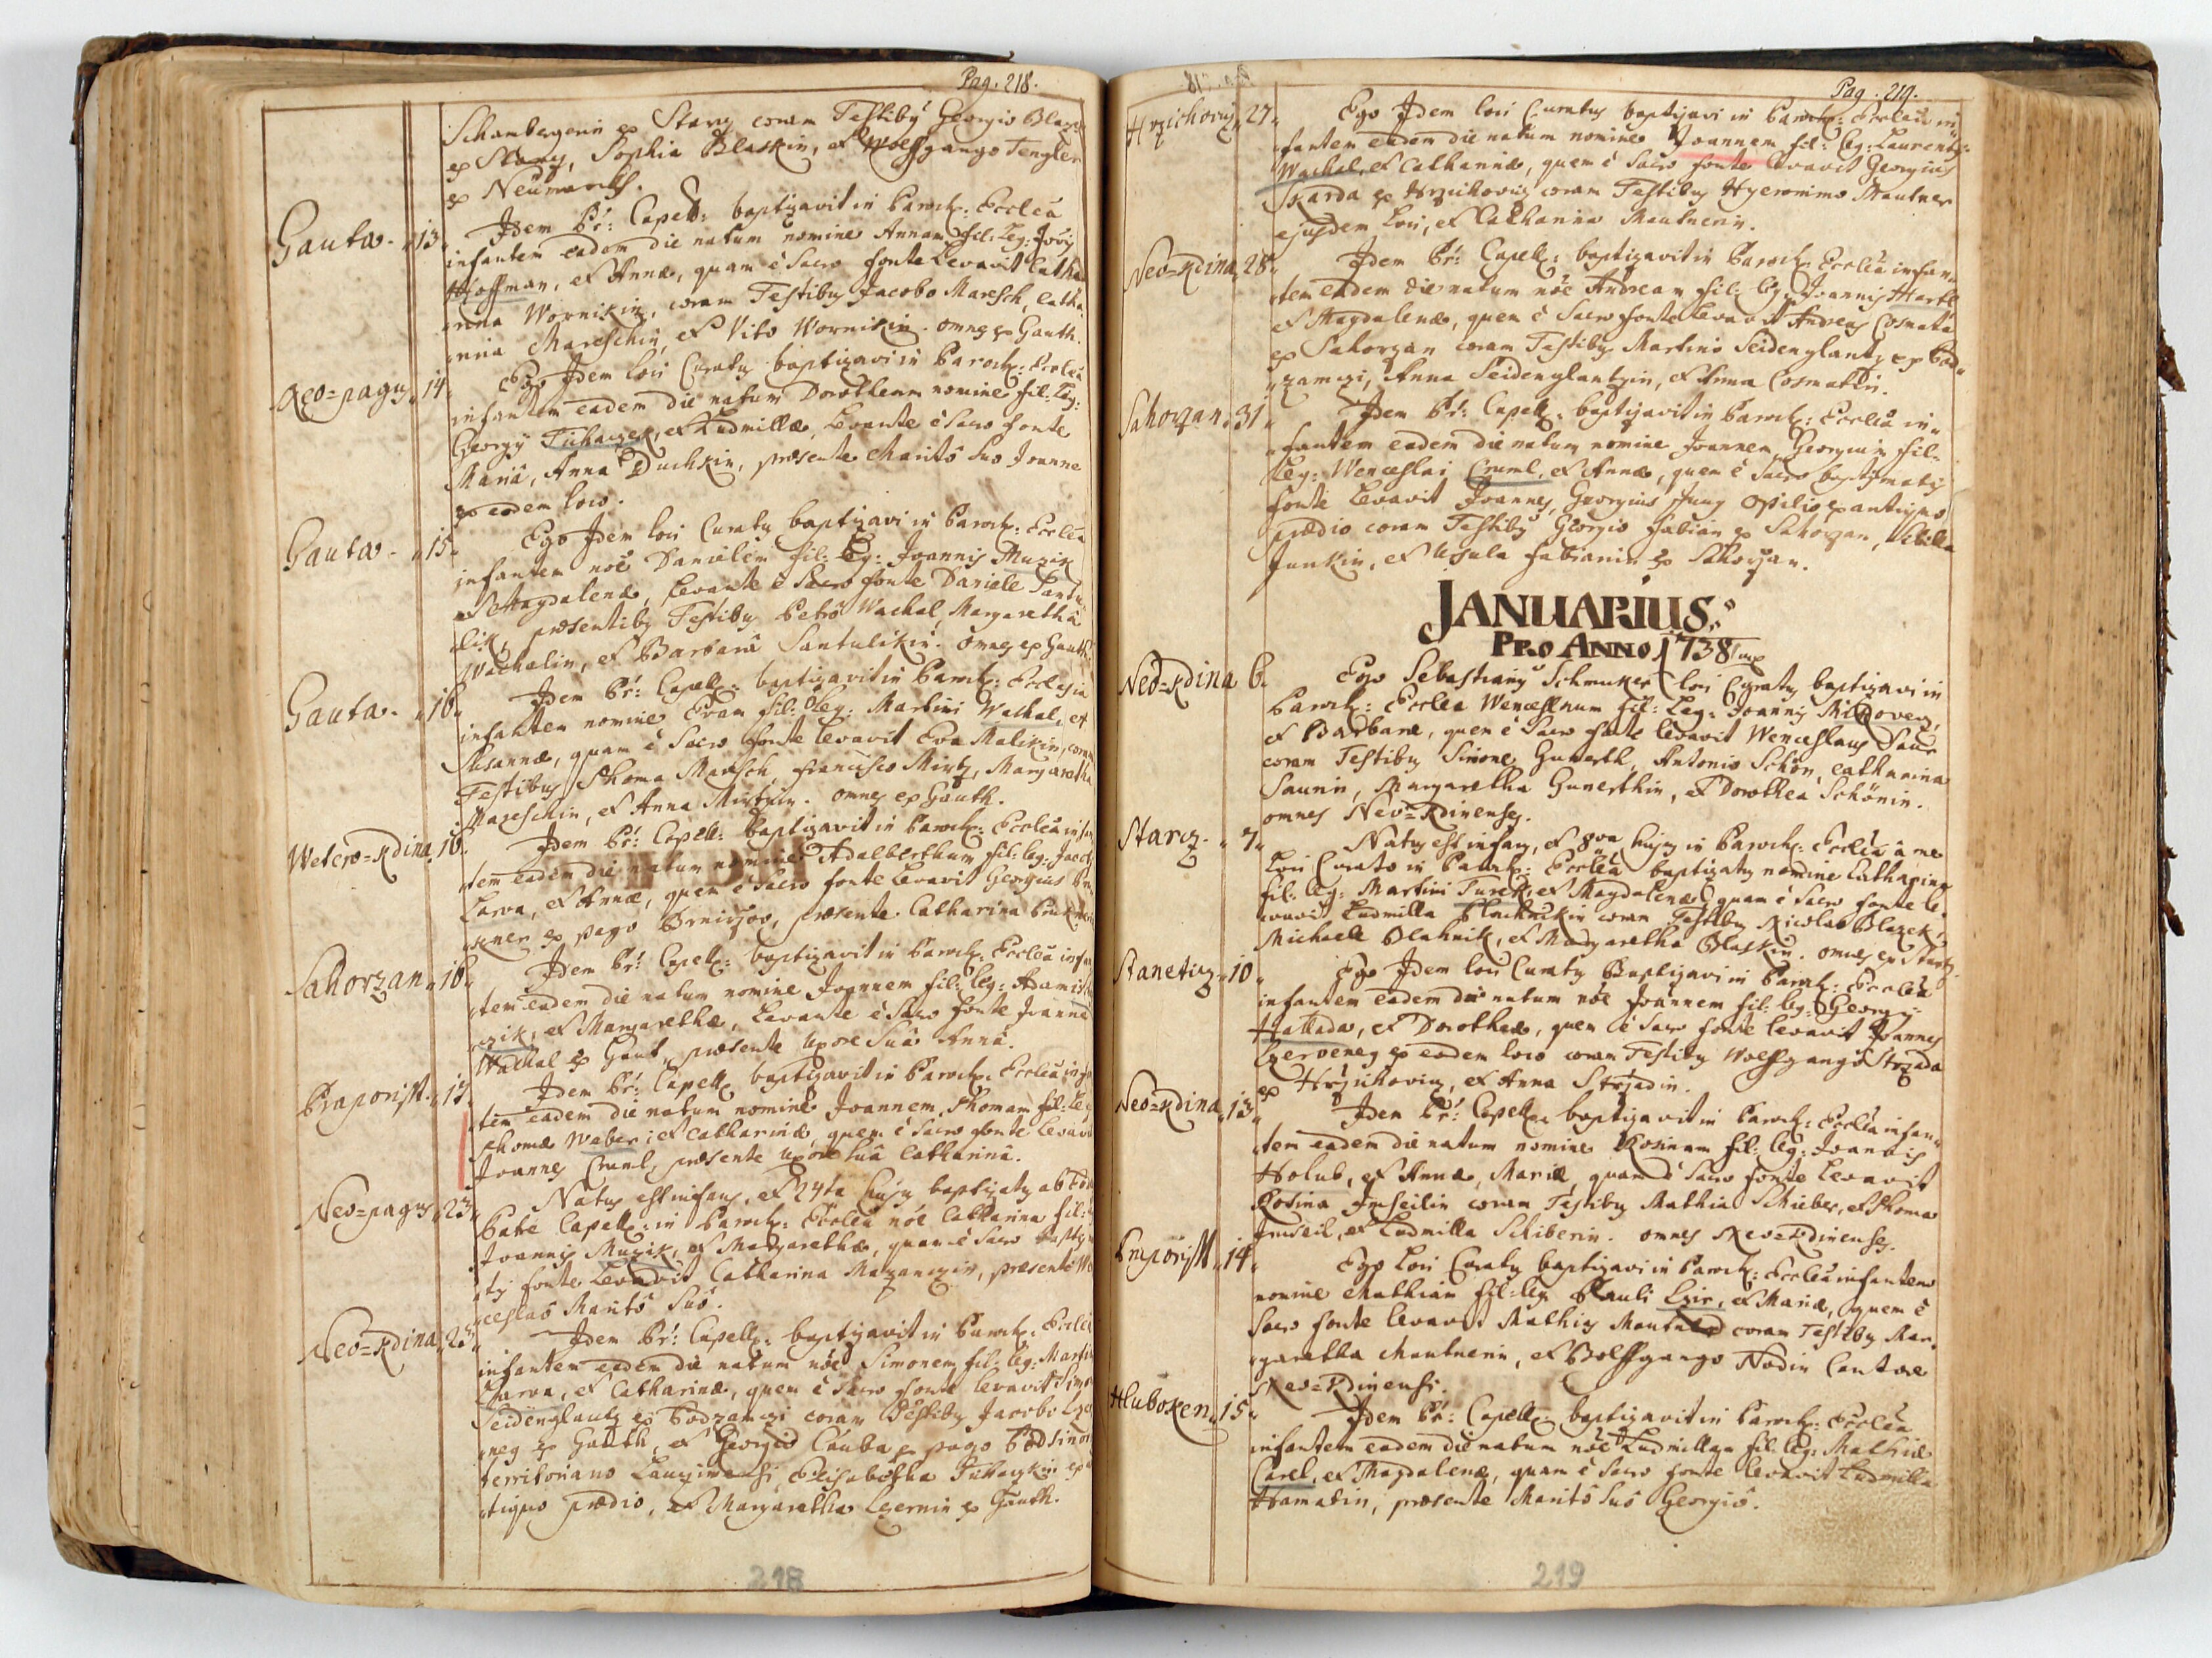 Pag. 218.
Schambergerin ex Starcz coram Testibus Georgio Blazek
ex Starcz, Sophia Blaskin, et Wolfgango Tengler
ex Neumarckh.
Gauta. 13. Idem Pr: Capell: baptizavit in Paroch: Ecclea
infantem eadem die natum nomine Annam, fil: leg:
Hoffman, et Annæ, quam è Sacro fonte Levavit Catha
rina Wornikin, coram Testibus Jacobo Maresch, Catha
rina Mareschin, et Vito Wornikin. omnes ex Gauth.
Neo=pagus. 14. Ego Idem loci Curatus baptizavi in Paroch: Ecclea
infantem eadem die natum Dorotheam nomine fil: Leg:
Georgij Tuhaczek, et Ludmillæ, Levante è Sacro fonte
Maria, Anna Duchkin, præsente Maritô suo Joanne
ex eodem loco.
Gauta. 15. Ego Idem loci Curatus baptizavi in Paroch: Ecclea
infantem nôe Danielem fil: leg: Joannis Muzik
et Magdalenæ, Levante è Sacro fonte Daniele Santu
lik, præsentibus Testibus Petro Wachal, Margarethâ
Wachalin, et Barbarâ Santulikin. omnes ex Gauth.
Gauta. 16. Idem Pr: Capell: baptizavit in Paroch: Ecclesia
infantem nomine Evam fil: leg: Martini Wachal, et
Susannæ, quam è Sacro fonte levavit Eva Malikin, coram
Testibus Thoma Maresch, Francisco Mirtz, Margaretha
Mareschin, et Anna Mirtzin. omnes ex Gauth.
Wetero=Kdina. 16. Idem Pr: Capell: baptizavit in Paroch: Ecclea infan
tem eadem die natum nomine Adalbertum fil: leg: Jacobi
Larva, et Annæ, quem è Sacro fonte Levavit Georgius
ex pago Brnirzow, præsente Catharina
Sahorzan. 16. Idem Pr: Capell: baptizavit in Paroch: Ecclea infan
tem eadem die natum nomine Joannem fil: leg: Adami
zik, et Margarethæ, Levante è Sacro fonte Joanne
Wachal ex Gaut, præsente Uxore Suâ Annâ.
Praporisst. 17. Idem Pr: Capell: baptizavit in Paroch: Ecclea infan
tem eadem die natum nomine Joannem, Thomam fil: leg
Thomæ Waber, et Catharinæ, quem è Sacro fonte levavit
Joannes Cruml, præsente Uxore suâ Catharinâ.
Neo=pagus. 23. Natus est infans, et 24ta hujus baptizatus ab
Patre Capell: in Paroch: Ecclea nôe Catharina fil:
Joannis Muzik, et Margarethæ, quam è Sacro
tis fonte Levavit Catharina Mazanczin, præsente
ceslao Maritô Suô.
Neo=Kdina. Idem Pr: Capell: baptizavit in Paroch: Ecclea
infantem eadem die natum nôe Simonem fil: leg: Martini
Larva, et Catharinæ, quem è Sacro fonte levavit Simon
Seidenglantz ex Podzamczi coram Testibus Jacobo
neg ex Gauth, et Georgio Cauba ex pago
territoriano Elisabetha Tuhaczkin ex
tiquo prædio, et Margaretha Czernin ex Gauth.
218
Pag. 219.
Hrzichowiz. 27. Ego Idem loci Curatus baptizavi in Paroch: Ecclea in
fantem eadem die natum nomine Joannem fil: leg: Laurentij
Wachal, et Catharinæ, quem è Sacro fonte levavit Georgius
Skarda ex Hrzichowiz coram Testibus Hyeronimo Mautner
ejusdem loci, et Catharina Mautnerin.
Neo=Kdina. 28. Idem Pr: Capell: baptizavit in Paroch: Ecclea infan
tem eadem die natum nôe Andream fil: leg: Joannis Hartl
et Magdalenæ, quem è Sacro fonte levavit Andreas Cosmata
ex Sahorzan coram Testibus Martino Seidenglantz ex Pod
zamczi, Anna Seidenglantzin, et Anna Cosmatkin.
Sahorzan. 31. Idem Pr: Capell: baptizavit in Paroch: Ecclea in
fantem eadem die natum nomine Joannem, Georgium fil:
leg: Wenceslai Cruml, et Annæ, quem è Sacro baptismatis
fonte Levavit Joannes, Georgius Jung Opilio ex antiquo
prædio coram Testibus Georgio Fabian ex Sahorzan, Sibilla
Junkin, et Ursula Fabianin ex Sahorzan.
JANUARIUS.
PRO ANNO 1738
Neo=Kdina 6. Ego Sebastianus Schmuker loci Curatus baptizavi in
Paroch: Ecclea Wenceslaum fil: Leg: Joannis Milloveny,
et Barbaræ, quem è Sacro fonte levavit Wenceslaus Saur
coram Testibus Simone Gunerth, Antonio Schön, Catharina
Saurin, Margaretha Gunerthin, et Dorothea Schönin.
omnes Neo=Kdinenses.
Starcz. 7. Natus est infans, et 8va hujus in Paroch: Ecclea à me
Loci Curato in Paroch: Ecclea baptizatus nomine Catharina
fil: leg: Martini Turek, et Magdalenæ, quam è Sacro fonte le
vavit Ludmilla Blachnikin coram Testibus Nicolao Blazek,
Michaele Blahnik, et Margaretha Blaskin. omnes ex Startz.
Stanetiz. 10. Ego Idem loci Curatus Baptizavi in Paroch: Ecclea
infantem eadem die natum nôe Joannem fil: leg: Georgij
Hallada, et Dorotheæ, quem è Sacro fonte levavit Joannes
Czerveney ex eodem loco coram Testibus Wolfgangô Strzada
ex Hrzichowiz, et Anna Strzadin.
Neo=Kdina. 13. Idem Pr: Capell: baptizavit in Paroch: Ecclea infan
tem eadem die natum nomine Rosinam fil: leg: Joannis
Holub, et Annæ, Mariæ, quam è Sacro fonte Levavit
Rosina Imseilin coram Testibus Mathia Schieber, et Thoma
Imseil, et Ludmilla Schiberin. omnes Neo=Kdinenses.
Praporisst. 14. Ego Loci Curatus baptizavi in Paroch: Ecclea infantem
nomine Mathiam fil: leg: Pauli Lzir, et Mariæ, quem è
Sacro fonte levavit Mathias Mautner coram Testibus Mar
garetha Mautnerin, et Wolffgango Nodin Cantore
Neo=Kdinensi.
Hluboken. 15. Idem Pr: Capell: baptizavit in Paroch: Ecclea
infantem eadem die natum nôe Ludmillam fil: leg: Mathiæ
Carel, et Magdalenæ, quam è Sacro fonte levavit Ludmilla
Hamatin, præsente Maritô suô Georgiô.
219